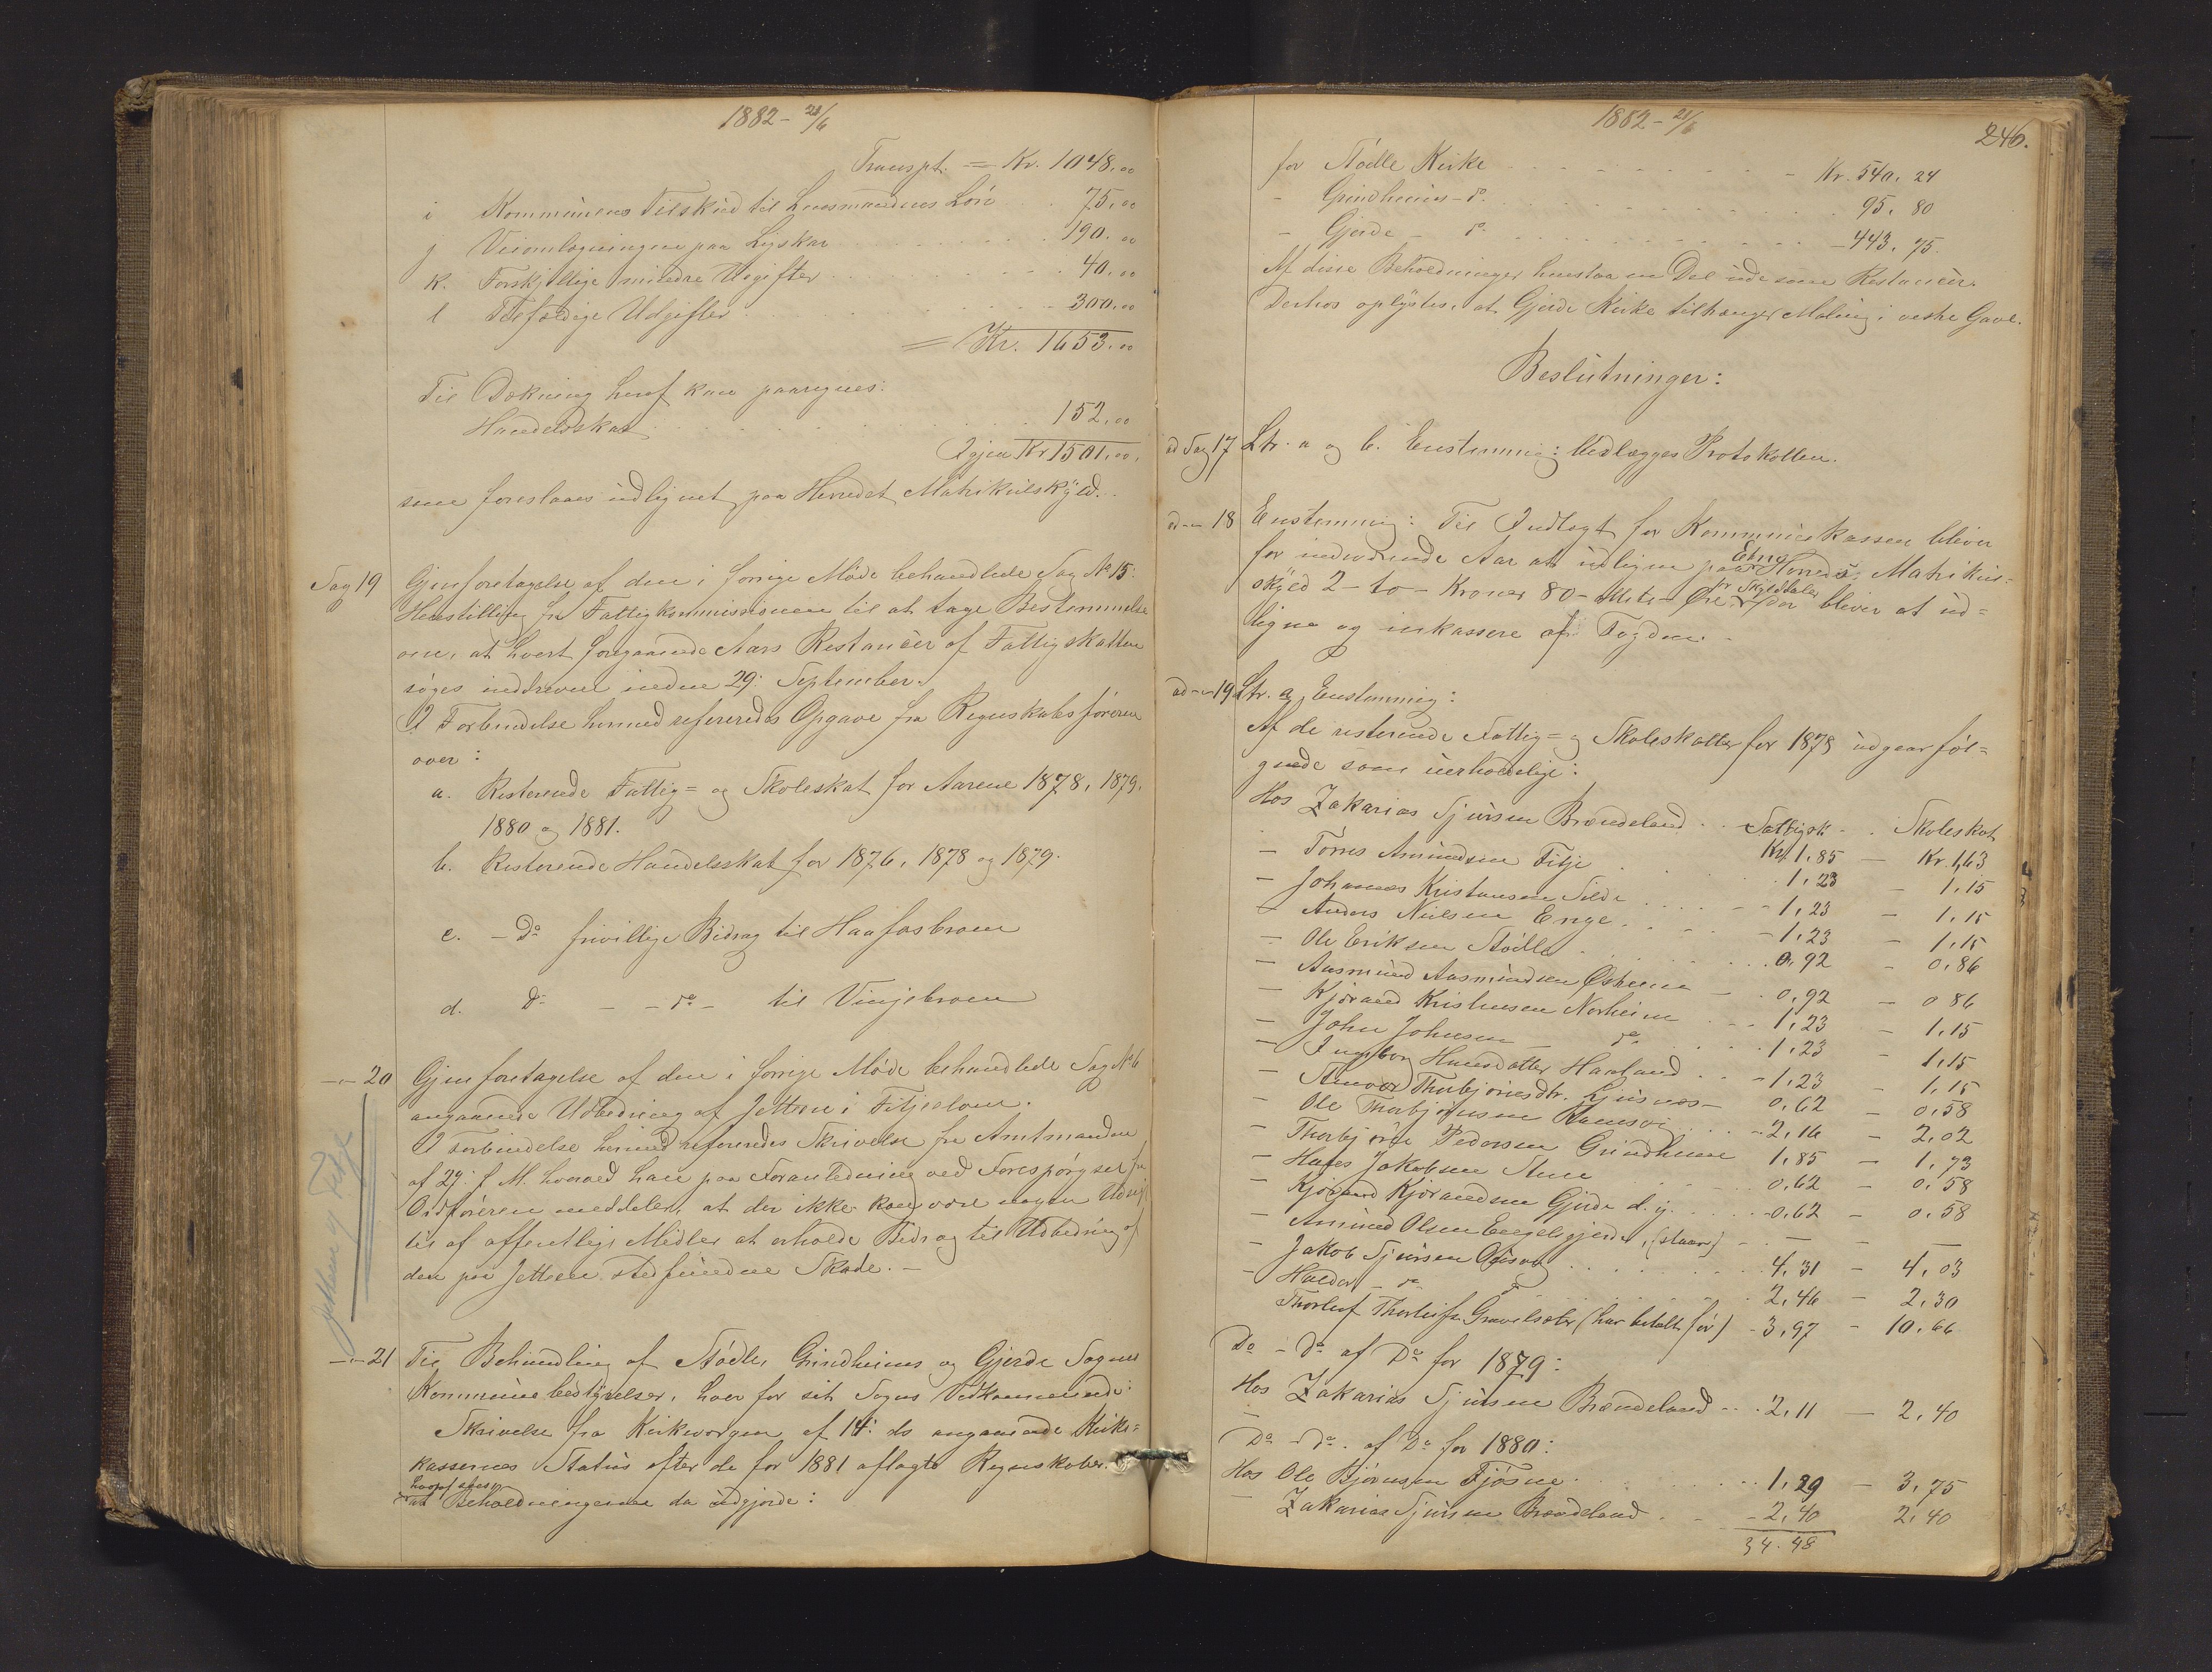 1882 - 21/6
Transpt. = Kr. 1048.00
i Kommunens Tilskud til Lensmandens Løn . . 75.00
j Veiomlægningen paa Lijskar . . . 190.00
k. Forskjellige mindre Udgifter . . . 40.00
l Tilfældige Udgifter . . . 300.00
= Kr. 1653.00
Til Dækning heraf kan paaregnes:
Handelsskat . . . 152.00
Igjen Kr 1501.00,
som foreslaaes udlignet paa Herredet Matrikulskyld.
Sag 19 Gjenforetagelse af den i forrige Møde behandlede Sag No 15:
Henstilling fra Fattigkommissionen til at tage Bestemmelse
om, at hvert foregaaende Aars Restancer af Fattigskatten
søges inddrevne inden 29. September.
I Forbindelse hermed refereredes Opgave fra Regnskabsføreren
over:
a. Resterende Fattig= og Skoleskat for Aarene 1878, 1879,
1880 og 1881.
b. Resterende Handelsskat for 1876, 1878 og 1879.
c. - Do frivillige Bidrag til Haafosbroen
d. Do - - do - til Vinjebroen
-"- 20 Gjenforetagelse af den i forrige Møde behandlede Sag No 6
angaaende Udbedring af Jetteen i Fitjeelven.
I Forbindelse hermed refereredes Skrivelse fra Amtmanden
af 27. f. M. hvorved han paa Foranledning ved Forespørgsel fra
Ordføreren meddeler, at der ikke kan være nogen Udsigt
til af offentlige Midler at erholde Bidrag til Udbedring af
den paa Jetteen stedfundne Skade. -
-"- 21 Til Behandling af Stødle, Grindheims og Gjerde Sogns
Kommunebestyrelser, hver for sit Sogns Vedkommende:
Skrivelse fra Kirkevergen af 14. ds angaaende Kirke=
kassernes Status efter de for 1881 aflagte Regnskaber.
hvoraf
at Beholdningerne da udgjorde:
1882 - 21/6
246.
for Stødle Kirke . . . Kr. 540. 24
- Grindheims - do . . . 95. 80
- Gjerde - do . . . - 443. 75.
Af disse Beholdninger henstaa en Del ude som Restancer.
Derhos oplystes, at Gjerde Kirke tiltrænger Maling i vestre Gavl.
Beslutninger:
ad Sag 17 Ltr. a og b. Enstemmig: Vedlægges Protokollen.
ad -"- 18 Enstemmig: Til Indtægt for Kommunekassen bliver
for indeværende Aar at udligne paa Etne Herreds Matrikul=
skyld 2 - to - Kroner 80 - otteti - Øre pr Skylddaler der bliver at ud=
ligne og inkassere af Fogden. -
ad -"- 19 Ltr. a, Enstemmig:
Af de resterende Fattig= og Skoleskatter for 1878 udgaar føl=
gende som uerholdelige:
Fattigsk. . . Skoleskat
Hos Zakarias Sjursen Brændeland . . Kr. 1.85 - Kr. 1.63
- Tørres Amundsen Fitje . . . 1.23 - 1.15
- Johannes Kristensen Silde . . . 1.23 - 1.15
- Anders Nielsen Enge . . . 1.23 - 1.15
- Ole Eriksen Stødle . . . 0.92 - 0.86
- Aasmund Aasmundsen Østreim . . 0.92 - 0 86
- Kjørand Kristensen Norheim . . 1.23 - 1.15
- John Johnsen do . . . 1.23 - 1.15
- Ingebor Hansdatter Haaland . . 1.23 - 1.15
- Thorbjørnsdtr. Ljusnæs - 0.62 - 0.58
- Ole Thorbjørnsen Ramsvig . . 2.16 - 2.02
- Thorbjørn Pedersen Grindheim 1.85 - 1.73
- Hans Jakobsen Steen . . . 0.62 - 0.58
- Kjørand Kjørandsen Gjerde d. y. . . . 0.62 - 0.58
- Amund Olsen Engelsgjerde, (staar) - - -
- Jakob Sjursen . . . 4.31 - 4.03
- Haldor - do do . . . 2.46 - 2.30
Thorleif Thorleifs. Gravelsæter (har betalt før) - 3.97 - 10.66
Do - Do af Do for 1879:
Hos Zakarias Sjursen Brændeland . . . 2.11 - 2.40
Do - do. af Do for 1880:
Hos Ole Bjørnsen Fjøsne . . . 1.29 - 3.75
- Zakarias Sjursen Brændeland . . - 2.40 2.40
34.48
Jetteen i Fitje